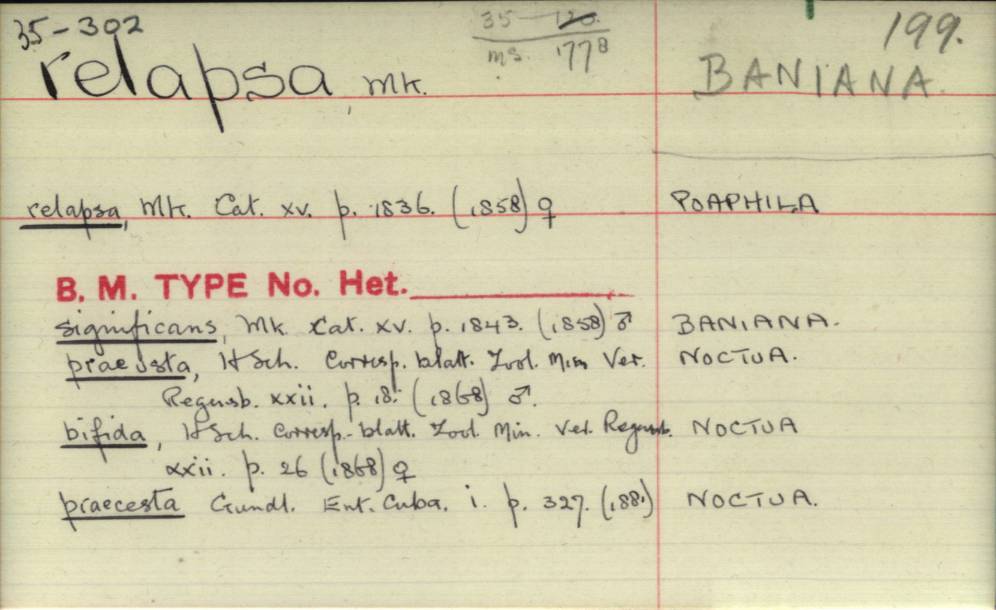 35-302
35 - 120.
ms. 778
199.
relapsa, Mk.
BANIANA.
relapsa, Mk. Cat. xv. p. 1836. (1858) ♀ POAPHILA
B. M. TYPE No. Het.
significans, Mk. Cat. xv. p. 1843. (1858) ♂ BANIANA.
praeusta, H Sch. Corresp. blatt. Zool. Min Ver. NOCTUA.
Regensb. xxii. p. 18. (1868) ♂.
bifida, H Sch. Corresp. blatt. Zool Min. Ver. Regensb. NOCTUA
xxii. p. 26 (1868) ♀
praecesta Gundl. Ent. Cuba. i. p. 327. (1881) NOCTUA.